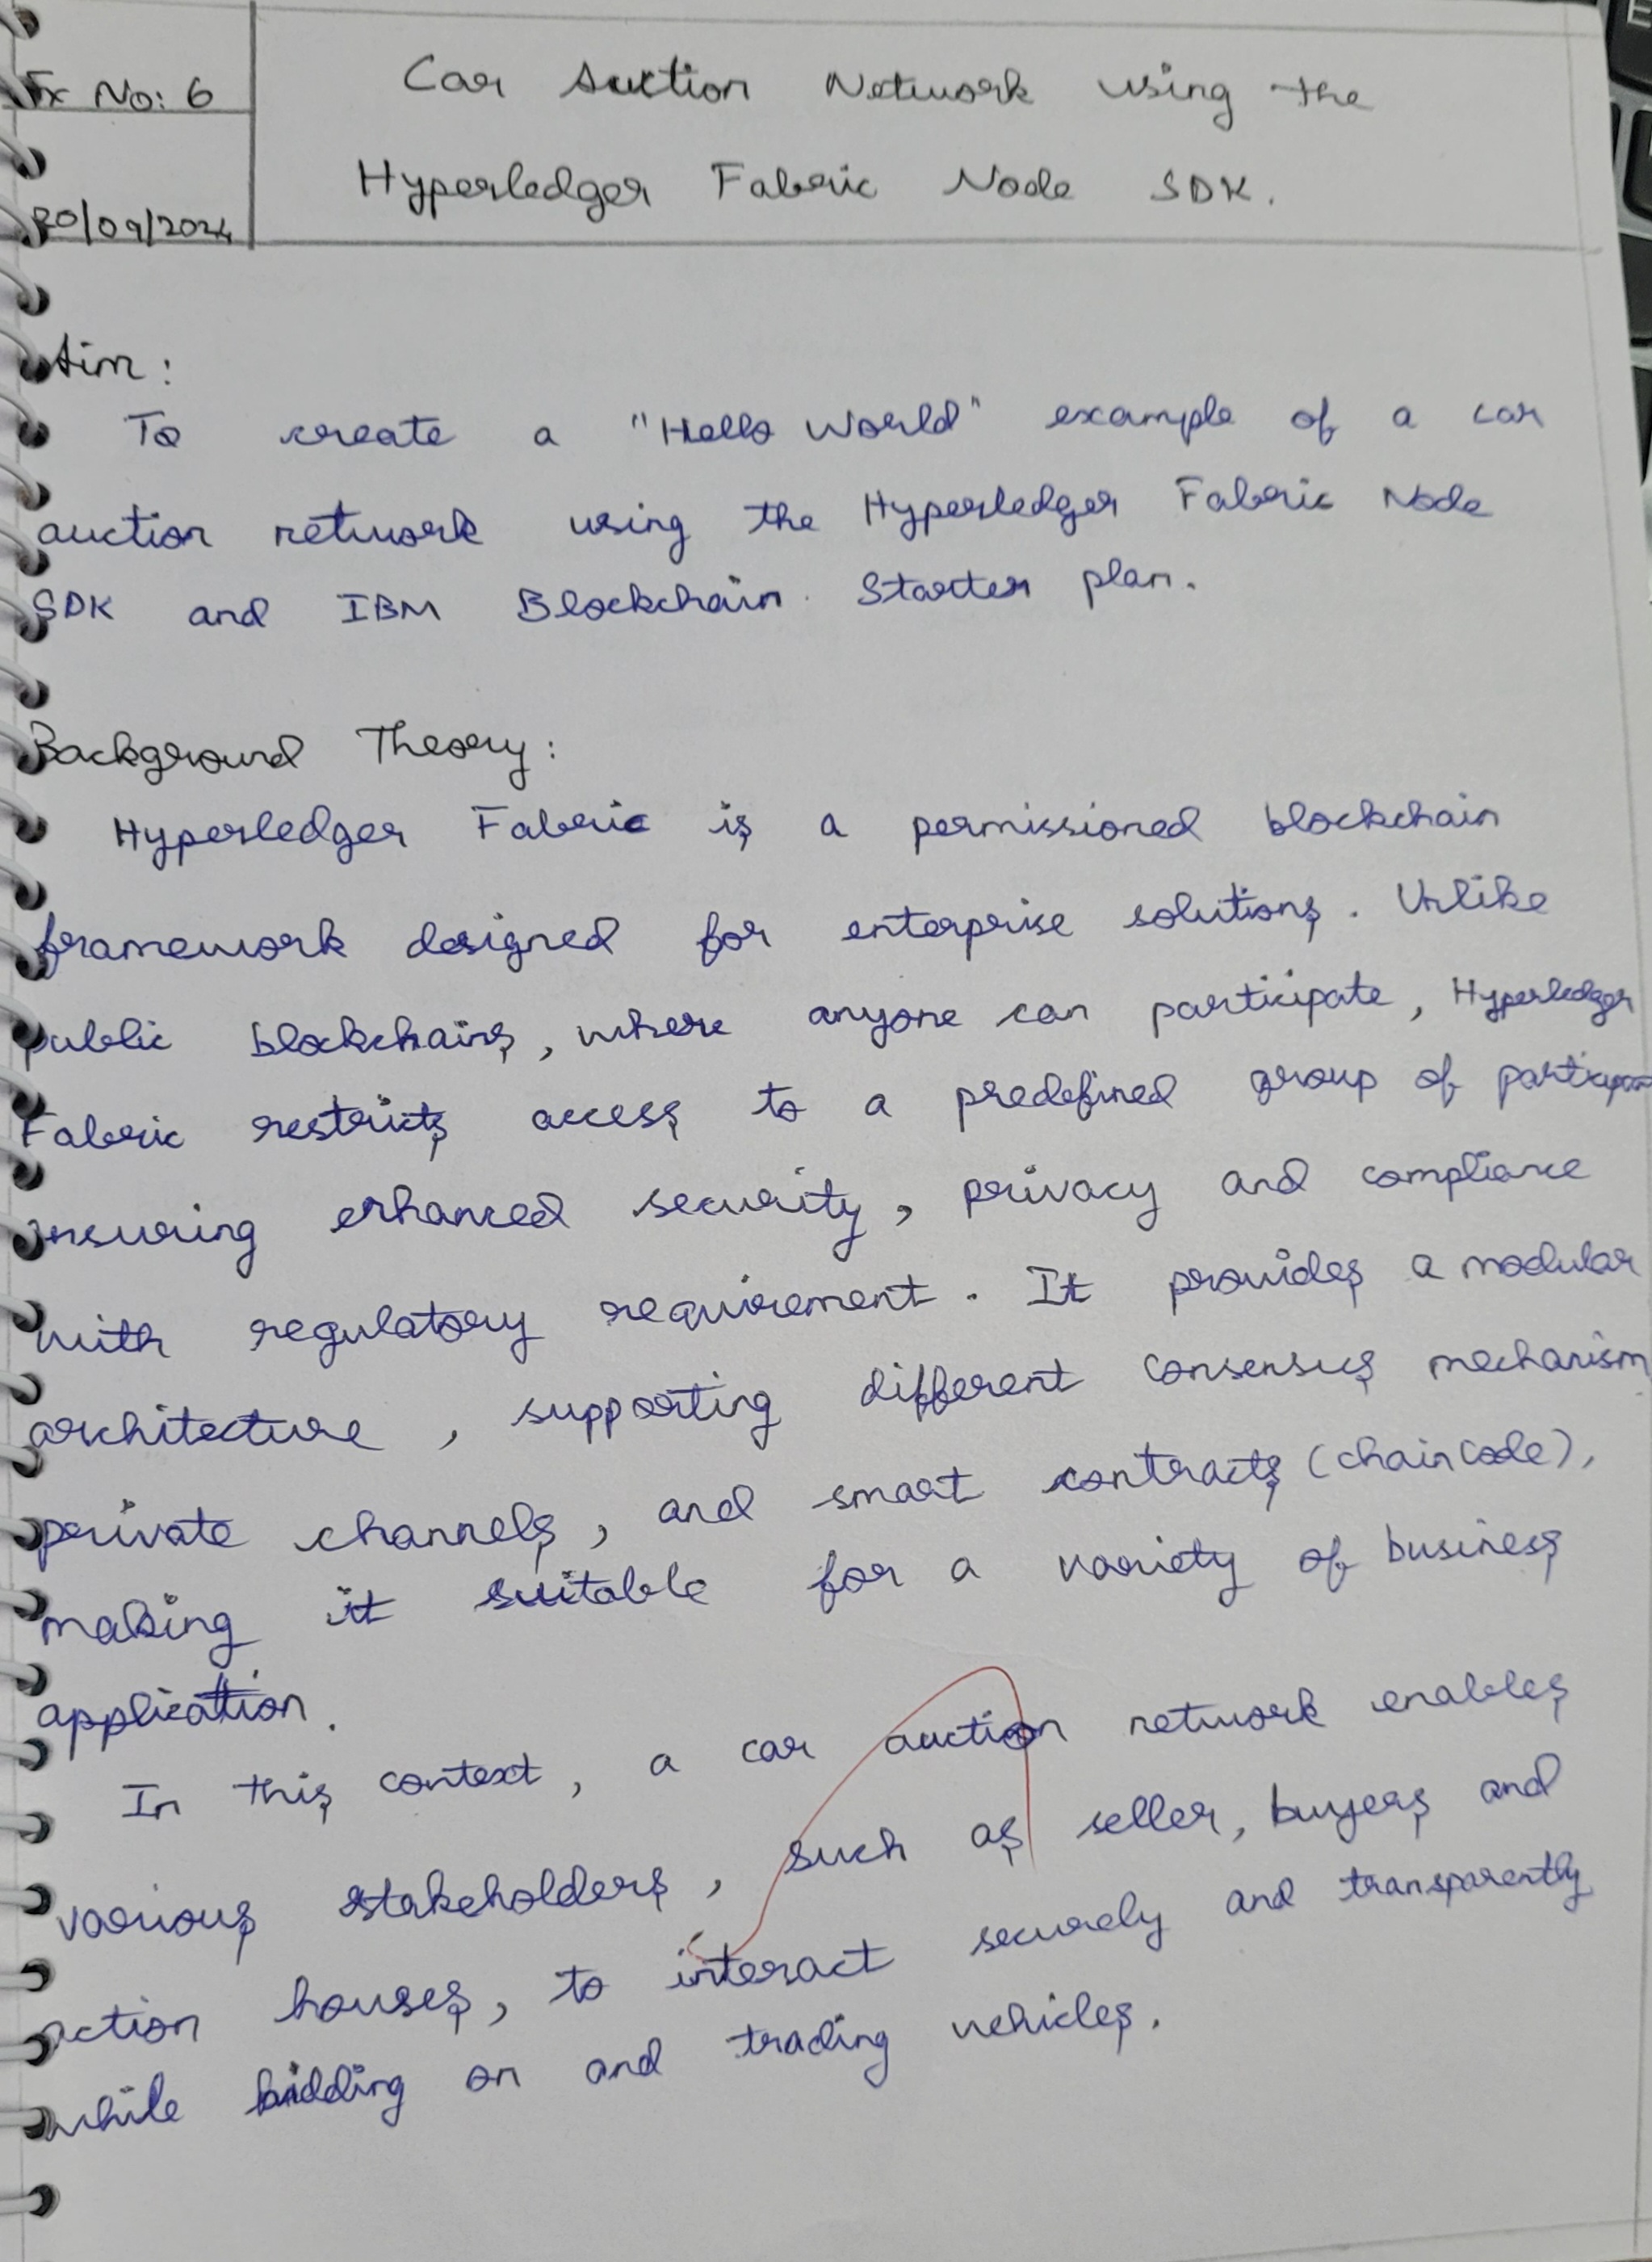 Ex No: 6
Car Auction Network using the
Hyperledger Fabric Node SDK.
20/09/2024
Aim:
To create a "Hello World" example of a car
auction network using the Hyperledger Fabric Node
SDK and IBM Blockchain Starter plan.
Background Theory:
Hyperledger Fabric is a permissioned blockchain
framework designed for enterprise solutions. Unlike
public blockchains, where anyone can participate, Hyperledger
Fabric restricts access to a predefined group of
ensuring enhanced security, privacy and compliance
with regulatory requirement. It provides a modular
architecture, supporting different consensus mechanism
private channels, and smart contracts (chaincode),
making it suitable for a variety of business
application.
In this context, a car auction network enables
various stakeholders, such as seller, buyers and
action houses, to interact securely and transparently
while bidding on and trading vehicles.